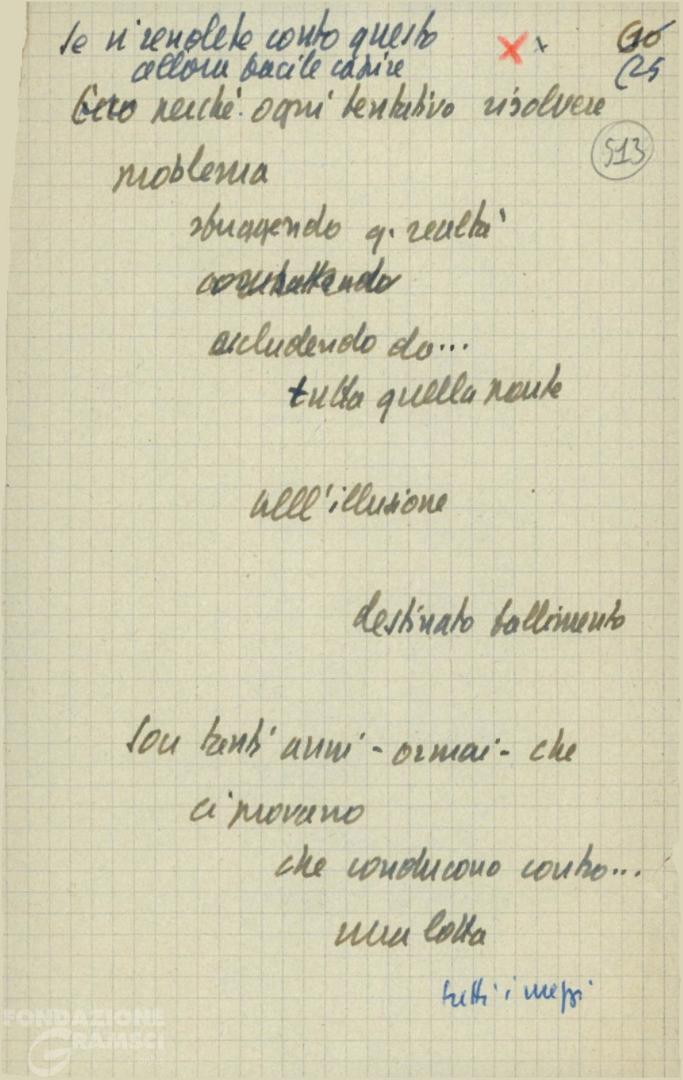 Se vi rendete conto questo
allora facile capire
Ecco perché ogni tentativo risolvere
problema
sfuggendo q. realtà
combattendo
escludendo da...
tutta quella parte
all'illusione
destinato fallimento
Son tanti anni - ormai - che
ci provano
che conducono contro...
una lotta
tutti i mezzi
25
513
FONDAZIONE
GRAMSCI